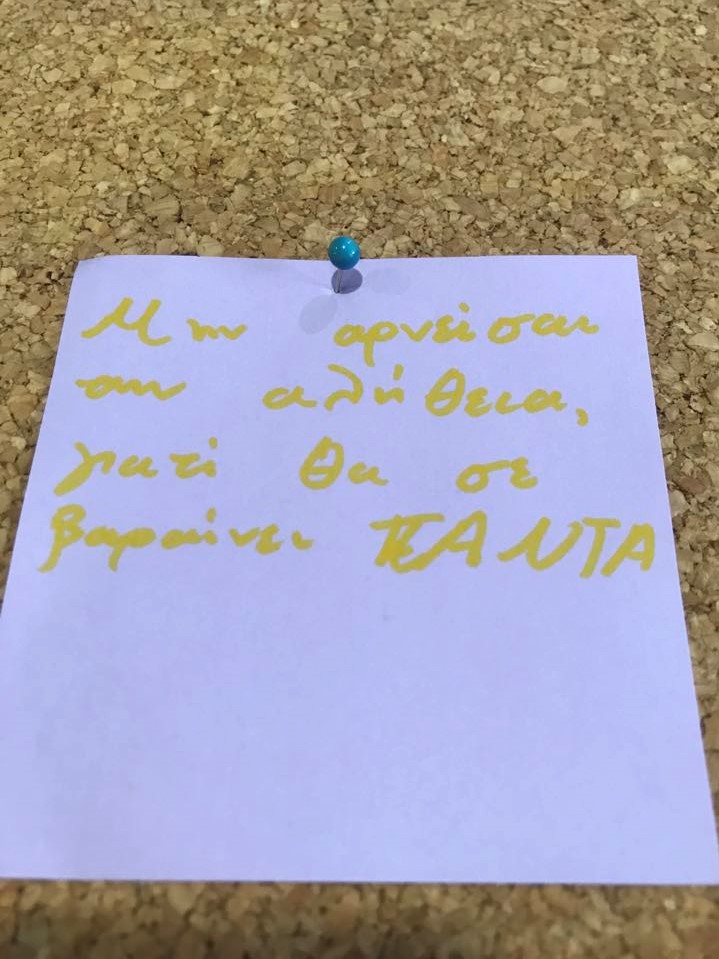 Μην αρνείσαι
την αλήθεια,
γιατί θα σε
βαραίνει ΠΑΝΤΑ